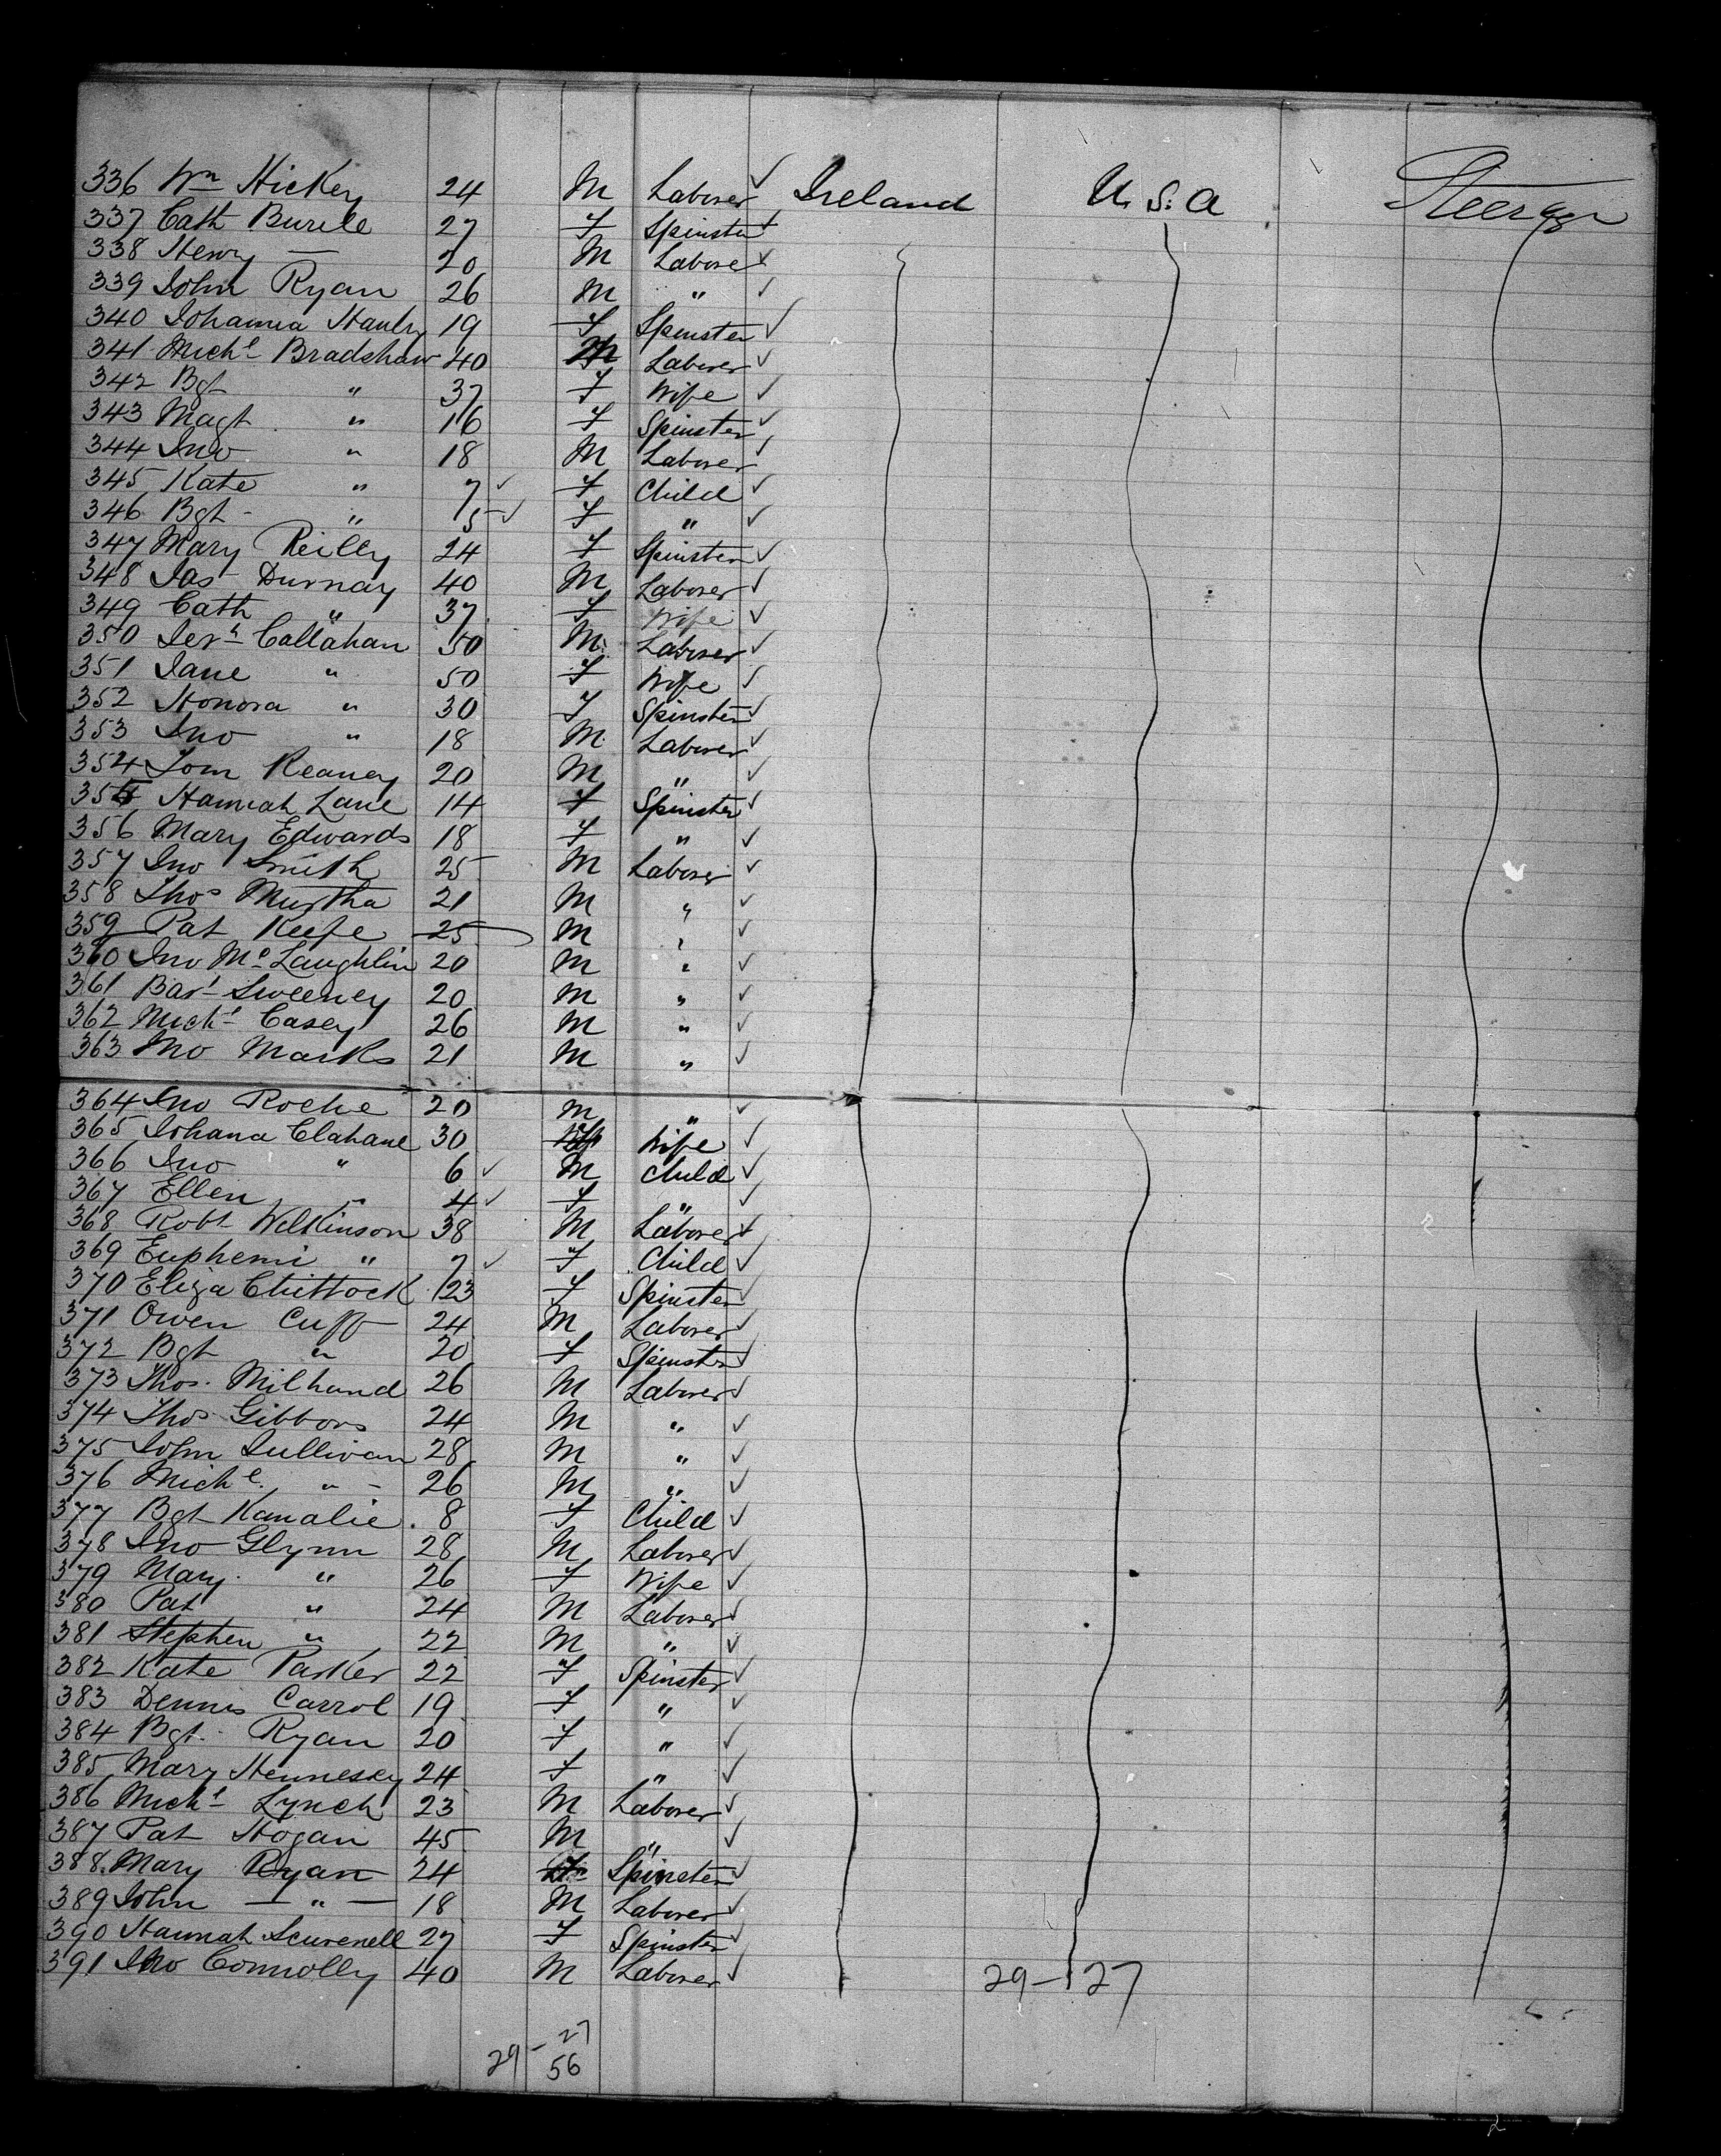 336 Wm Hickey 24 M Laborer ✓ Ireland U.S.A Steerage
337 Cath Burke 27 F Spinster ✓
338 Henry — 20 M Laborer ✓
339 John Ryan 26 M " ✓
340 Johanna Hanley 19 F Spinster ✓
341 Michl Bradshaw 40 M Laborer ✓
342 Bgt " 37 F Wife ✓
343 Magt " 16 F Spinster ✓
344 Jno " 18 M Laborer ✓
345 Kate " 7 ✓ F Child ✓
346 Bgt " 5 ✓ F " ✓
347 Mary Reilly 24 F Spinster ✓
348 Jas Durnay 40 M Laborer ✓
349 Cath " 37 F Wife ✓
350 Jerh Callahan 50 M Laborer ✓
351 Jane " 50 F Wife ✓
352 Honora " 30 F Spinster ✓
353 Jno " 18 M Laborer ✓
354 Tom Keaney 20 M " ✓
355 Hannah Lane 14 F Spinster ✓
356 Mary Edwards 18 F " ✓
357 Jno Smith 25 M Laborer ✓
358 Thos Murtha 21 M " ✓
359 Pat Keefe 25 M " ✓
360 Jno McLaughlin 20 M " ✓
361 Bart Sweeney 20 M " ✓
362 Michl Casey 26 M " ✓
363 Jno Marks 21 M " ✓
364 Jno Roche 20 M " ✓
365 Johana Clahane 30 F Wife ✓
366 Jno " 6 ✓ M Child ✓
367 Ellen " 4 ✓ F " ✓
368 Robt Wilkinson 38 M Laborer ✓
369 Euphemi " 7 ✓ F Child ✓
370 Eliza Chittock 23 F Spinster ✓
371 Owen Cuff 24 M Laborer ✓
372 Bgt " 20 F Spinster ✓
373 Thos. Milhand 26 M Laborer ✓
374 Thos Gibbons 24 M " ✓
375 John Sullivan 28 M " ✓
376 Michl. " 26 M " ✓
377 Bgt Kanalie 8 F Child ✓
378 Jno Glynn 28 M Laborer ✓
379 Mary " 26 F Wife ✓
380 Pat " 24 M Laborer ✓
381 Stephen " 22 M " ✓
382 Kate Parker 22 F Spinster ✓
383 Dennis Carrol 19 F " ✓
384 Bgt. Ryan 20 F " ✓
385 Mary Hennesey 24 F " ✓
386 Michl Lynch 23 M Laborer ✓
387 Pat Hogan 45 M " ✓
388. Mary Ryan 24 F Spinster ✓
389 John — " — 18 M Laborer ✓
390 Hannah 27 F Spinster ✓
391 Jno Connolly 40 M Laborer ✓
29 - 27
27
29 - 56